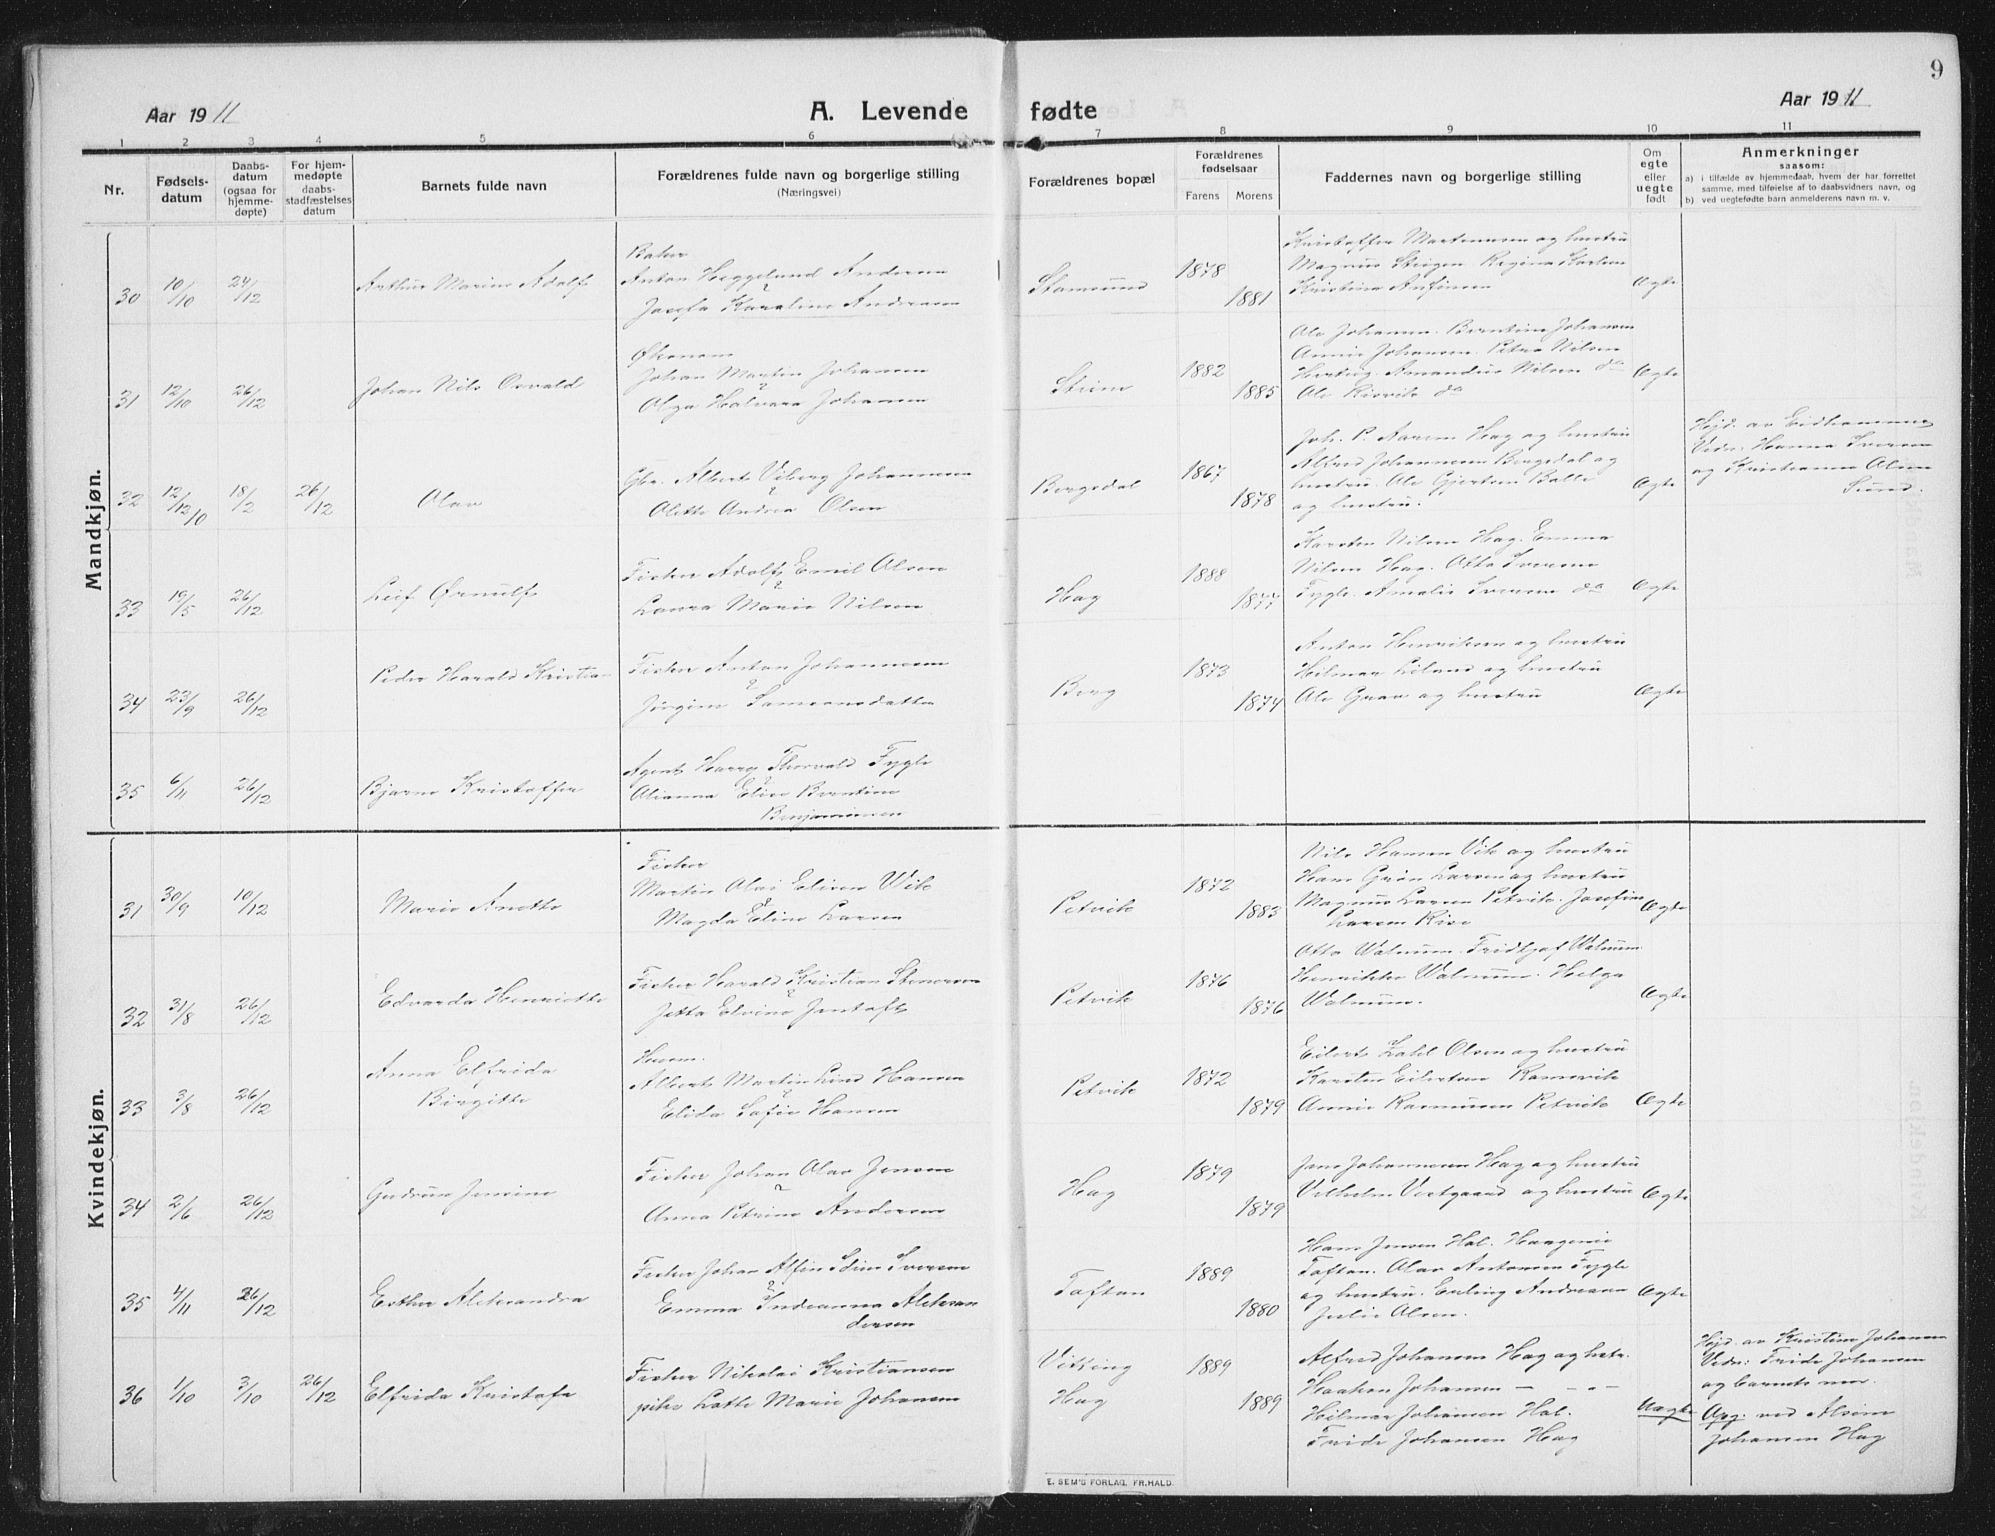 9
Aar 1911
A. Levende fødte
Aar 1911
1 2 3 4 5 6 7 8 9 10 11
Nr.
Fødsels-
datum
Daabs-
datum
(ogsaa for
hjemme-
døpte)
For hjem-
medøpte
daabs-
stadfæstelses
datum
Barnets fulde navn
Forældrenes fulde navn og borgerlige stilling
(Næringsvei)
Forældrenes bopæl
Forældrenes
fødselsaar
Farens Morens
Faddernes navn og borgerlige stilling
Om
egte
eller
uegte
født
Anmerkninger
saasom:
a) i tilfælde av hjemmedaab, hvem der har forrettet
samme, med tilføielse af to daabsvidners navn, og
b) ved uegtefødte barn anmelderens navn m. v.
Mandkjøn.
30 10/10 24/12 Arthur Marius Adolf
Baker
Anton Heggelund Andersen
Josefa Karoline Andreasen
Stamsund 1878 1881
Kristoffer Martinussen og hustru
Magnus Steigen Regina
Kristine
Ægte
31 12/10 26/12 Johan Nils Osvald
Økonom
Johan Martin Johansen
Olga Halvara Johansen
Steine 1882 1885
Ole Johansen. Berntine Johansen
Annie Johansen. Petra Nilsen
Amandus Nilsen do
Ole Risvik do
Ægte
32 12/12 10 18/2 26/12 Olav
Gbr. Albert Viberg Johannesen
Olette Andrea Olsen
Borgedal 1867 1878
Joh. P. Aasen Hag og hustru
Alfred Johannesen Borgedal og
hustru. Ole Gjertsen Balle
og hustru.
Ægte
Hjd. av
Vidn: Hanna Iversen
og Kristianna Olsen
Sund.
33 19/5 26/12 Leif Ørnulf
Fisker Adolf Emil Olsen
Laura Marie Nilsen
Hag 1888 1877
Karsten Nilsen Hag. Emma
Nilsen Hag. Otto Iversen
Fygle. Amalie Iversen do
Ægte
34 23/9 26/12 Peder Harald Kristian
Fisker Anton Johannesen
Jørgine Samsonsdatter
Borg 1873 1874
Anton Henriksen og hustru
Hilmar Eiland og hustru
Ole Grav og hustru
Ægte
35 6/11 26/12 Bjarne Kristoffer
Agent Harry Thorvald Fygle
Olianna Elise Berntine
Benjaminsen
Kvindekjøn.
31 30/9 10/12 Marie Anette
Fisker
Martin Olai Elisen Wik
Magda Eline Larsen
Petvik 1872 1883
Nils Hansen Vik og hustru
Hans Grøn Larsen og hustru
Magnus Larsen Petvik. Josefine
Larsen Rise
Ægte
32 31/8 26/12 Edvarda Henriette
Fisker Harald Kristian Stenersen
Jetta Elvine Jentoft
Petvik 1876 1876
Otto Walnum. Fridtjof Walnum
Henrikke Walnum. Helga
Walnum.
Ægte
33 3/8 26/12 Anna Elfrida
Birgitte
Husm.
Albert Martin Lind Hansen
Elida Sofie Hansen
Petvik 1872 1879
Eilert Zahl Olsen og hustru
Karsten Eilertsen Ramsvik
Annie Rasmussen Petvik
Ægte
34 2/6 26/12 Gudrun Jensine
Fisker Johan Olav Jensen
Anna Petrine Andersen
Hag 1879 1879
Jens Johannesen Hag og hustru
Vilhelm Vestgaard og hustru
Ægte
35 4/11 26/12 Esther Aleksandra
Fisker Johan Alfin Edin Iversen
Emma Indianna Aleksan
dersen
Toftan 1889 1880
Hans Jensen Hol.
Toftan. Olav Antonsen Fygle
og hustru. Erling Andreasen
Julie Olsen.
Ægte
36 1/10 3/10 26/12 Elfrida Kristofa
Fisker Nikolai Kristiansen
pike Lotte Marie Johansen
Vikking
Hag
1889 1889
Alfred Johansen Hag og hstr.
Haakon Johansen — - o -
Hilmar Johansen Hol.
Fride Johansen Hag
Uægte
Hjd. av Kristine Johansen
Vidn: Fride Johansen
og barnets mor.
Opg. ved
Johansen Hag
E. SEM'S FORLAG, FR.HALD.